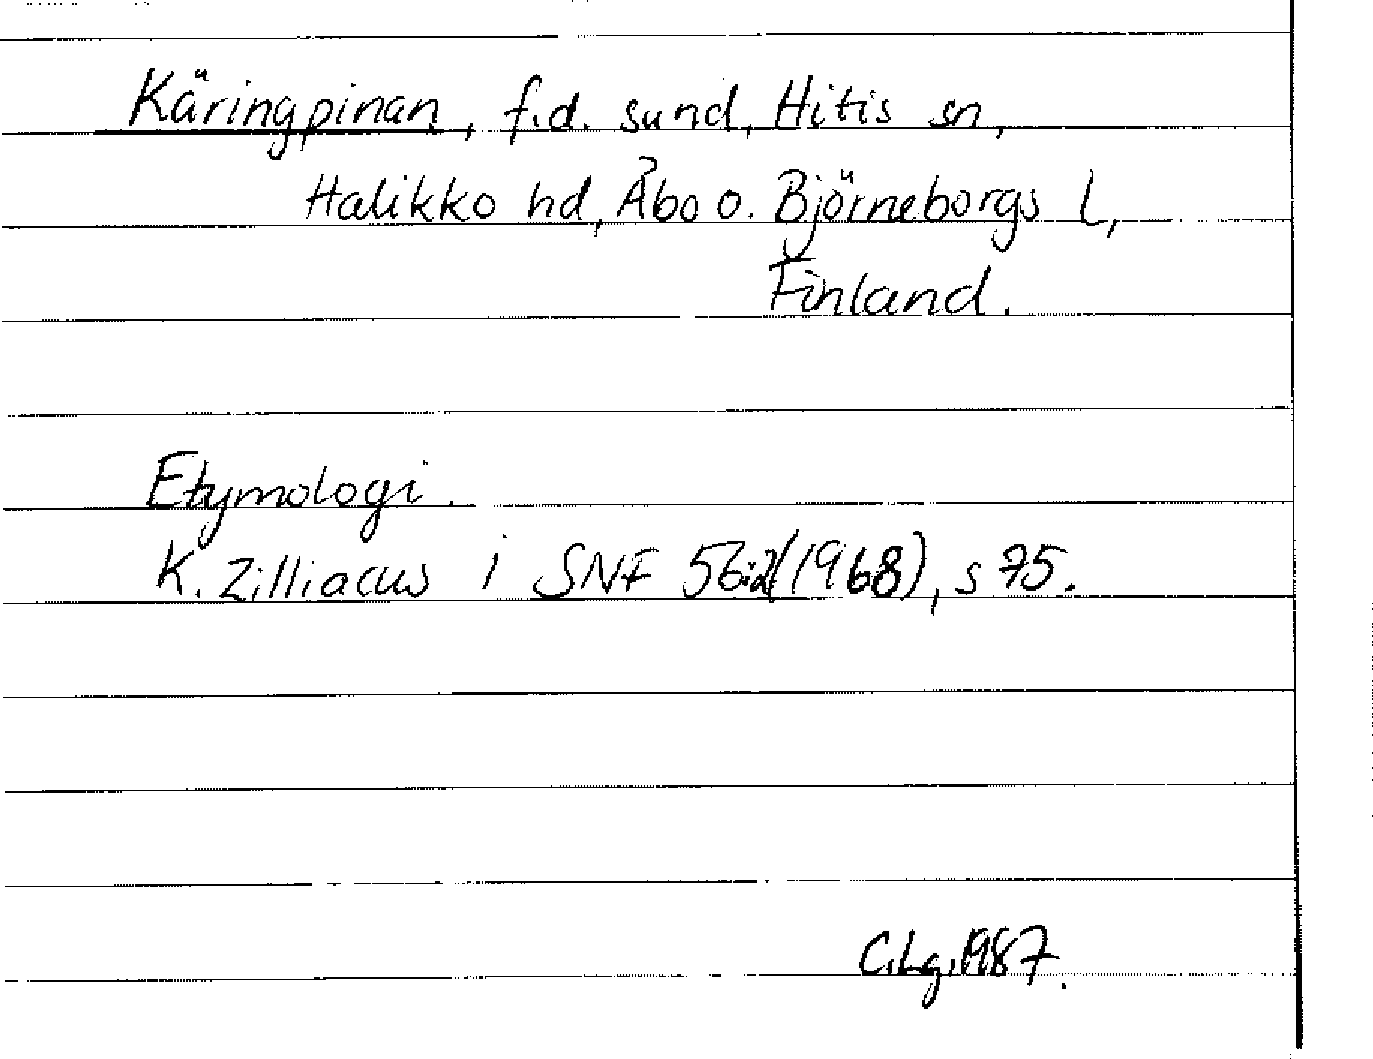 Käringpinan, f.d. sund, Hitis sn,
Halikko hd, Åbo o. Björneborgs l,
Finland.
Etymologi.
K. Zilliacus i SNF 56 (1968), s 75.
C.Lg. 1987.